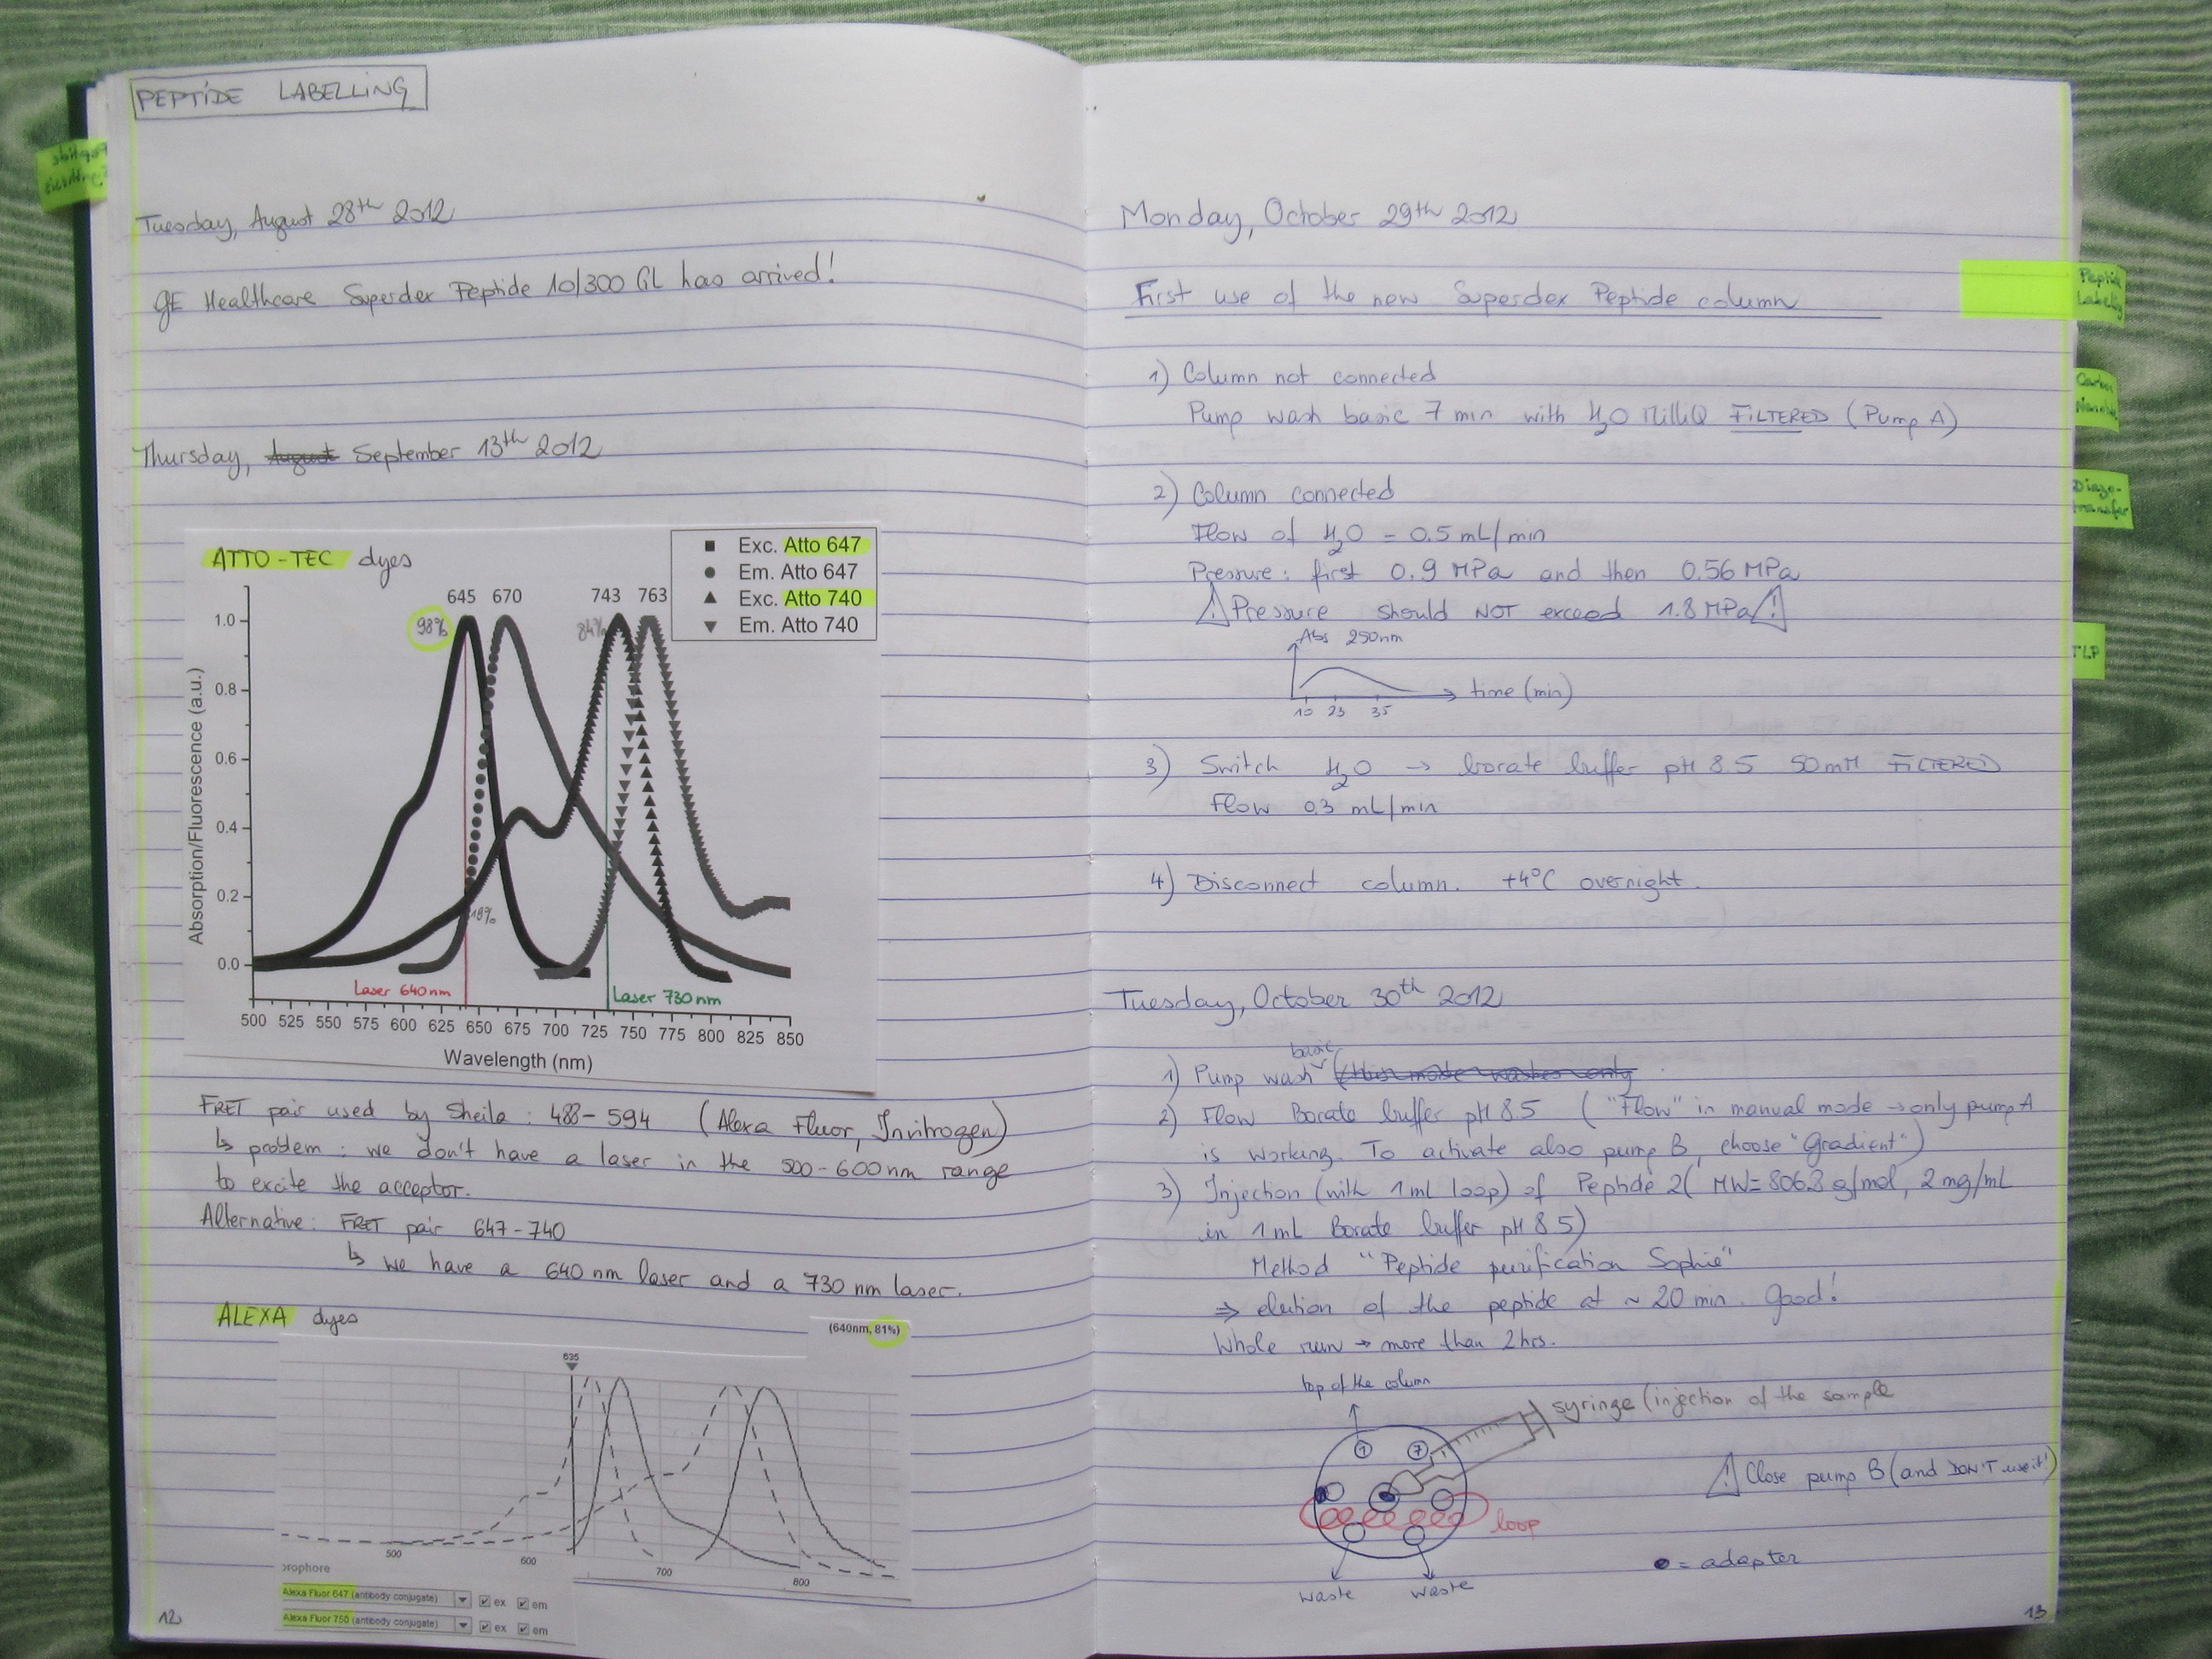 PEPTIDE LABELLING
Tuesday, August 28th 2012
GE Healthcare Superdex Peptide 10/300 GL has arrived!
Thursday, August September 13th 2012
ATTO-TEC dyes
Exc. Atto 647
Em. Atto 647
Exc. Atto 740
Em. Atto 740
645 670 743 763
98% 84%
1.0
0.8
0.6
0.4
0.2
0.0
Absorption/Fluorescence (a.u.)
18%
Laser 640nm
Laser 730nm
500 525 550 575 600 625 650 675 700 725 750 775 800 825 850
Wavelength (nm)
FRET pair used by Sheila: 488-594 (Alexa Fluor, Invitrogen)
↳ problem: we don't have a laser in the 500-600nm range
to excite the acceptor.
Alternative: FRET pair 647-740
↳ we have a 640 nm laser and a 730 nm laser.
ALEXA dyes
(640nm, 81%)
635
500 600 700 800
rophore
Alexa Fluor 647 (antibody conjugate) ex em
Alexa Fluor 750 (antibody conjugate) ex em
12
Monday, October 29th 2012
First use of the new Superdex Peptide column
1) Column not connected
Pump wash basic 7 min with H2O MilliQ FILTERED (Pump A)
2) Column connected
Flow of H2O = 0.5 mL/min
Pressure: first 0.9 MPa and then 0.56 MPa
⚠ Pressure should NOT exceed 1.8 MPa ⚠
Abs 290nm
time (min)
10 23 35
3) Switch H2O → borate buffer pH 8.5 50mM FILTERED
Flow 0.3 mL/min
4) Disconnect column. +4°C overnight.
Tuesday, October 30th 2012
basic
1) Pump wash
2) Flow Borate buffer pH 8.5 ("Flow" in manual mode → only pump A
is working. To activate also pump B, choose "Gradient")
3) Injection (with 1mL loop) of Peptide 2 (MW=806.8 g/mol, 2 mg/mL
in 1mL Borate buffer pH 8.5)
Method "Peptide purification Sophie"
⇒ elution of the peptide at ~ 20 min. Good!
Whole run → more than 2hrs.
top of the column
syringe (injection of the sample
1 7
⚠ Close pump B (and DON'T use it!)
loop
= adapter
waste waste
13
Peptide
Labelling
Carbon
Diazo-
transfer
TLP